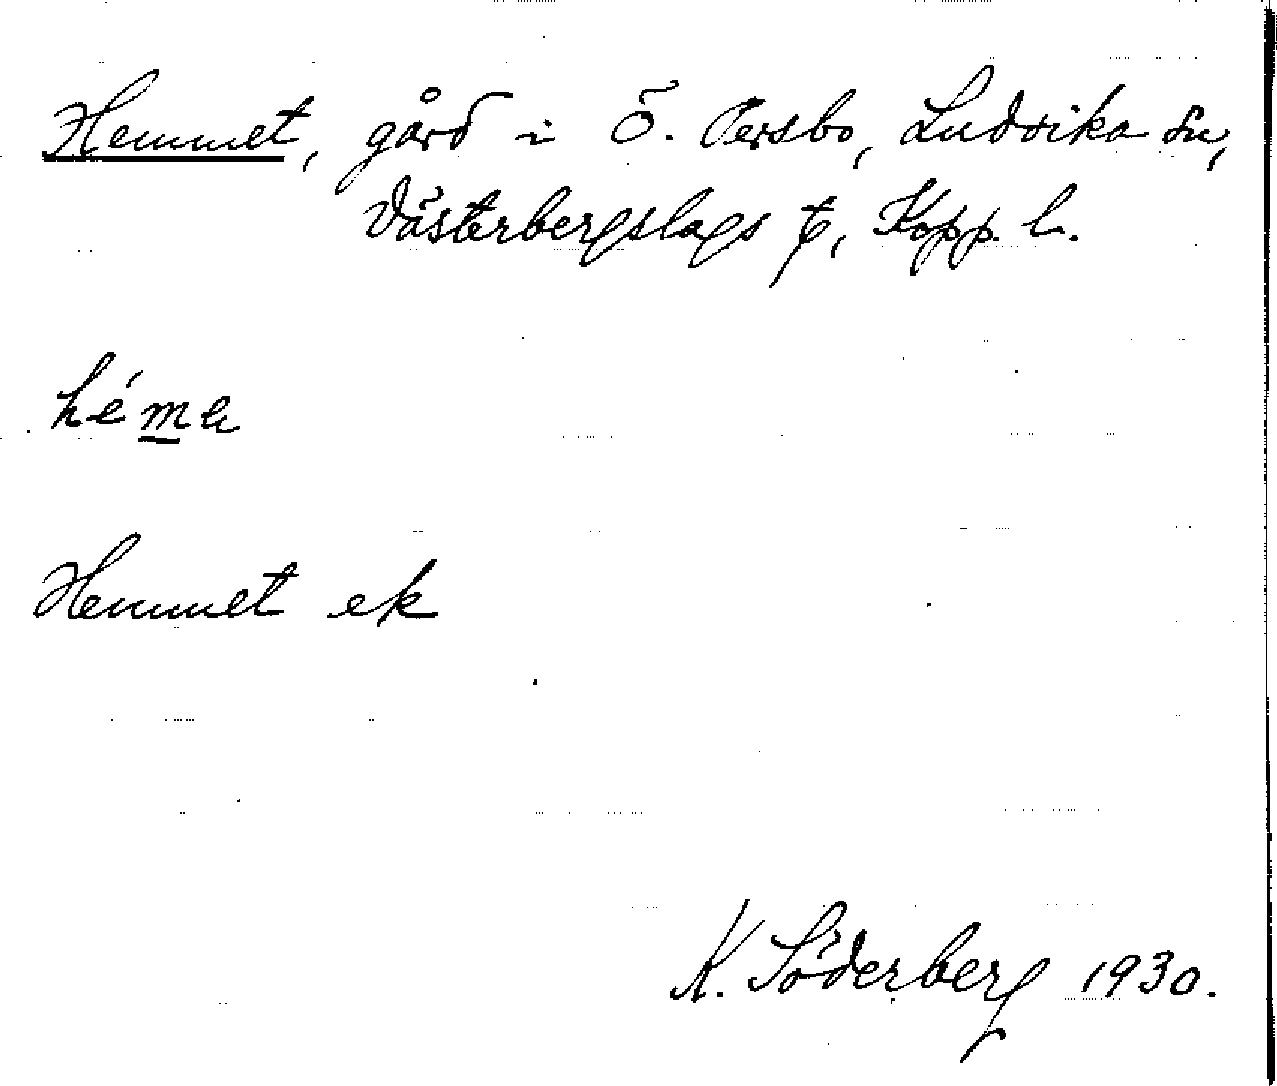 Hemmet, gård i Ö. Persbo, Ludvika sn,
Västerbergslags t, Kopp. l.
héma
Hemmet ek
K. Söderberg 1930.